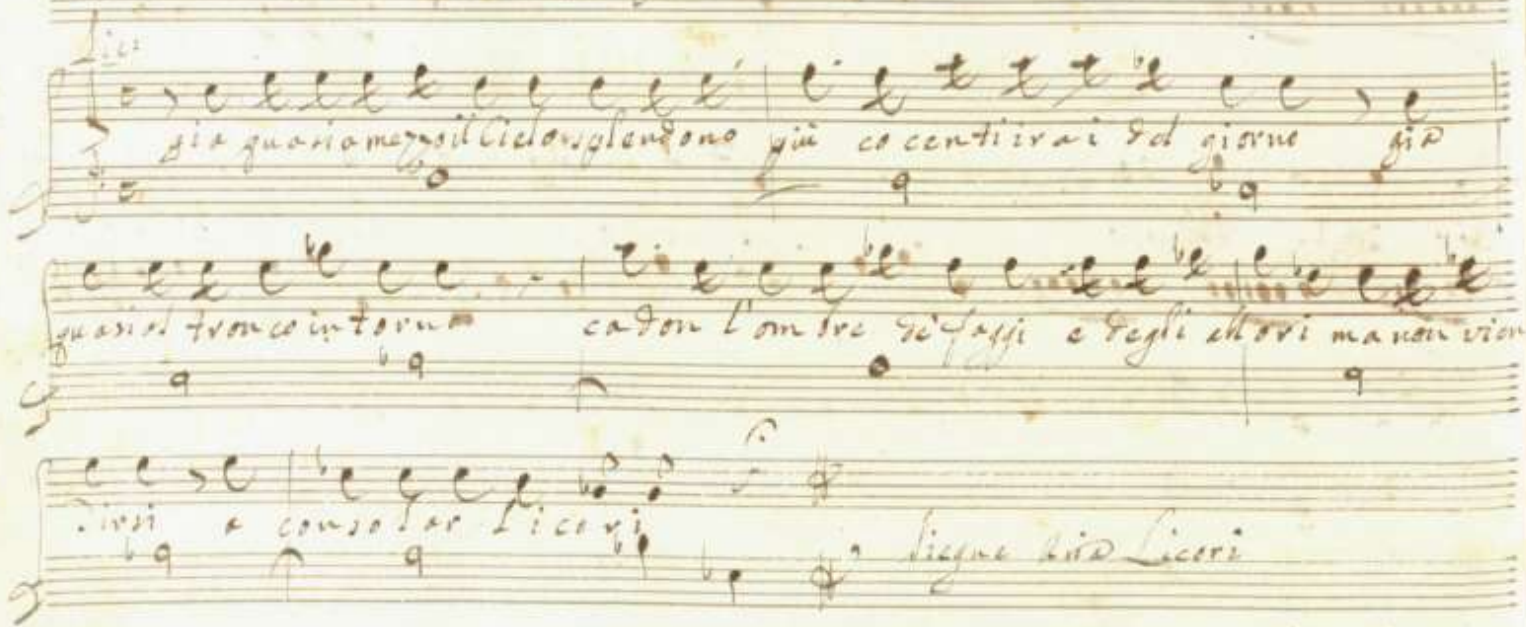 Lic:
già quasi a mezzo il Cielo risplendono più cocenti i rai del giorno già
quasi al tronco intorno cadon l'ombre de faggi e degli allori ma non vien
Tirsi a consolar Licori
Siegue Aria Licori